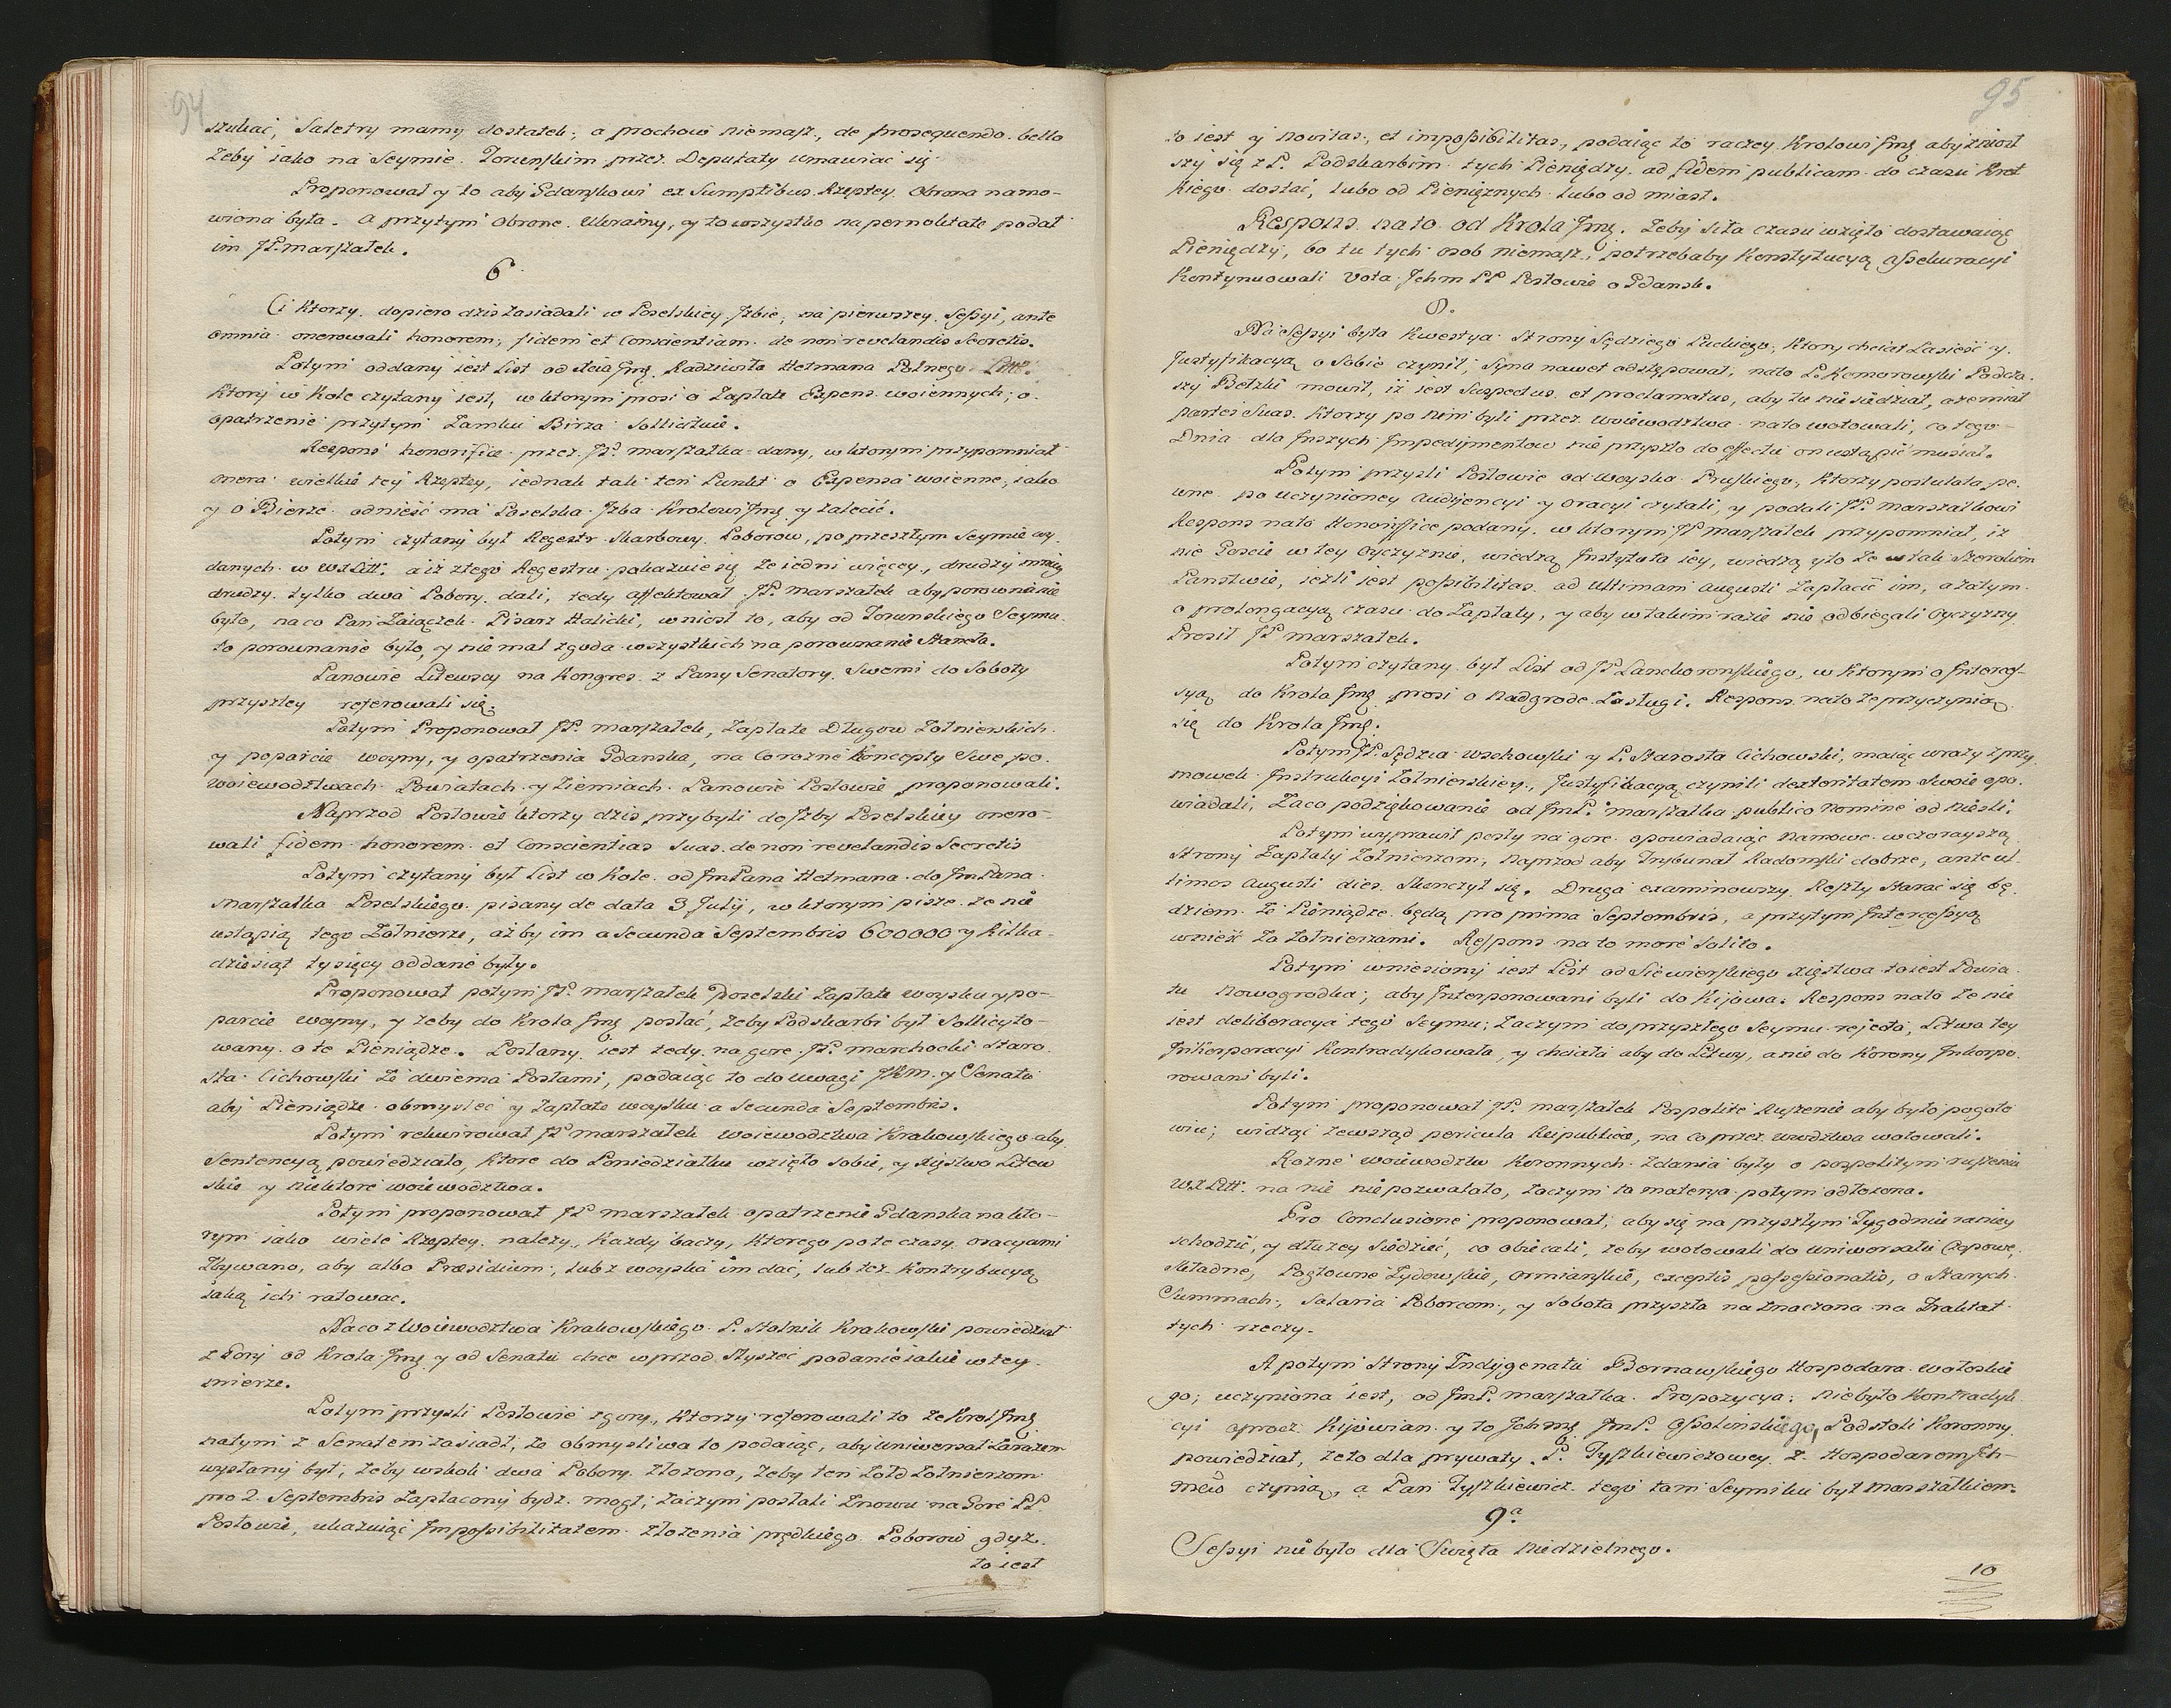 94
szukać, Saletry mamy dostatek, a prochow niemasz, de prosequendo bello
żeby iako na Seymie Torunskim przez Deputaty umawiac się
Proponował y to aby Gdanskowi ex Sumptibus Rzeptey Obrona namo-
wiona była. a przytym Obrone Ukrainy, y to wszystko na pernoktate podał
im JP. marszałek.
6
Ci Ktorzy dopiero dzis zasiadali w Poselskiey Jzbie, na pierwszey Seszyi, ante
omnia onerowali honorem, fidem et Conscientiam de non revelandis Secretis.
Potym oddany iest List od Xcia Jmę Radziwiła Hetmana Polnego Litt:
Ktory w Kole czytany iest, w ktorym prosi o Zapłate Expens woiennych, o
opatrzenie przytym Zamku Birza Sollicituie.
Respons honorifice przez JP. marszałka dany, w ktorym przypomniał
onera wielkie tey Rzeptey, iednak tak ten Punkt o Expensa woienne, iako
y o Bierze odnieść ma Poselska Jzba Krolowi Jmę y zalecić.
Potym czytany był Regestr Skarbowy Poborow, po przeszłym Seymie wy
danych w WXLitt: a iż z tego Regestru pokazuie się że iedni więcey, drudzy mniey
drudzy tylko dwa Pobory dali, tedy affektował JP. marszałek aby porownanie
było, na co Pan Zaiączek Pisarz Halicki, wniosł to, aby od Torunskiego Seymu
to porownanie było, y nie mal zgoda wszystkich na porownanie staneła.
Panowie Litewscy na Kongres z Pany Senatory Swemi do Soboty
przyszłey referowali się.
Potym Proponował JP. marszałek, Zapłate Długow Zołnierskich
y poparcie woyny, y opatrzenia Gdanska, na Co rożne Koncepty Swe po
woiewodztwach Powiatach y Ziemiach Panowie Posłowie proponowali.
Naprzod Posłowie ktorzy dzis przybyli do Jzby Poselskiey onero-
wali fidem honorem et Conscientias Suas de non revelandis Secretis
Potym czytany był List w Kole od Jm Pana Hetmana do Jm Pana
Marszałka Poselskiego pisany de data 3 Julÿ, w ktorym pisze że nie
ustąpią tego Zołnierze, aż by im a Secunda Septembris 600000 y Kilka
dziesiąt tysięcy oddane były.
Proponował potym JP. marszałek Poselski Zapłate woysku y po-
parcie woyny, y żeby do Krola Jmę posłać, żeby Podskarbi był Sollicyto-
wany o te Pieniądze. Posłany iest tedy na gore JP. marchocki Staro
sta Cichowski ze dwiema Posłami, podaiąc to do uwagi JKm. y Senatu
aby Pieniądze obmyslec y Zapłate woysku a Secunda Septembris.
Potym rekwirował JP marszałek woiewodztwa Krakowskiego aby
Sentencyą powiedziało, Ktore do Poniedziałku wzięło sobie, y Xięstwo Litew
skie y niektore woiewodztwa.
Potym proponował JP marszałek opatrzenie Gdanska na kto-
rym iako wiele Rzeptey należy, Każdy baczy, Ktorego po te czasy oracyami
Zbywano, aby albo Præsidium, lub z woyska im dać, lub też Kontrybucyą
iaką ich ratowac.
Na co z Woiewodztwa Krakowskiego P. Stolnik Krakowski powiedział
z Gory od Krola Jmę y od Senatu chce wprzod słyszec podanie iakie w tey
mierze.
Potym przyszli Posłowie z gory, Ktorzy referowali to że Krol Jmę
natym z Senatem zasiadł, że obmysliwa to podaiąc, aby uniwersał Zarazem
wysłany był, żeby wskok dwa Pobory złożono, żeby ten Zołd Zołnierzom
pro 2 Septembris Zapłacony bydz mogł, zaczym posłali Znowu na Gore PP
Posłowie, ukazuiąc Jmpossibilitatem złożenia prędkiego Poborow gdyż
to iest
95
to iest y novitas, et impossibilitas, podaiąc to raczey Krolowi Jmę aby znioż
szy się z P. Podskarbim tych Pieniędzy ad fidem publicam do czasu Krot
kiego dostać, lubo od Pieniężnych lubo od miast.
Respons na to od Krola Jmę. Żeby siła czasu wzięło dostawaiąc
Pieniędzy, bo tu tych osob niemasz, potrzebaby Konstytucyą assekuracyi
Kontynuowali Vota Jchm PP Posłowie o Gdansk.
8.
Na Sessyi była Kwestya Strony Sędziego Łuckiego, Ktory chciał Zasieść y
Justyfikacyą o Sobie czynił, Syna nawet odstępował, nato P. Komorowski Podcza
szy Bełzki mowił, iż iest Suspectus et proclamatus, aby tu nie siedział, a że miał
partes Suas Ktorzy po nim byli przez woiewodztwa nato wotowali, co tego
Dnia dla Jnszych Jmpedymentow nie przyszło do effectu on ustąpić musiał.
Potym przyszli Posłowie od woyska Pruskiego, Ktorzy postulata pe
wne po uczynioney audyencyi y oracyi czytali, y podali JP. marszałkowi
Respons nato Honoriffice podany, w ktorym JP marszałek przypomniał, iż
nie Goscie w tey Oyczyznie, wiedzą Jnstytuta iey, wiedzą y to że w tak Szerokim
Panstwie, iezli iest possibilitas ad ultimam augusti Zapłacić im, a zatym
o prolongacyą czasu do Zapłaty, y aby w takim razie nie odbiegali Oyczyzny
Prosił JP marszałek.
Potym czytany był List od JP Lanckoronskiego, w Ktorym o Jnterces-
syą do Krola Jmę prosi o Nadgrode Zasługi. Respons nato że przyczynią
się do Krola Jmę.
Potym JP. Sędzia wschowski y P. Starosta Cichowski, maiąc urazy z przy
mowek Jnstrukcyi Zołnierskiey, Justyfikacyą czynili dexteritatem Swoie opo
wiadali, Zaco podziękowanie od JmP. marszałka publico nomine od niesli.
Potym wyprawił posły na gore opowiadaiąc Namowe wczorayszą
Strony Zapłaty Zołnierzom, Naprzod aby Trybunał Radomski dobrze, ante ul
timos Augusti dies Skonczył się. Druga examinowszy Reszty Starać się bę
dziem że Pieniądze będą pro prima Septembris, a przytym Jntercessyą
wnieść Za Zołnierzami. Respons na to more solito.
Potym wniesiony iest List od Siewierskiego Xięstwa to iest Powia
tu Nowogrodka, aby Jnterponowani byli do Kijowa. Respons nato że nie
iest deliberacya tego Seymu, zaczym do przyszłego Seymu rejecta, Litwa tey
Jnkorporacyi Kontradykowała, y chciała aby do Litwy, a nie do Korony Jnkorpo
rowani byli.
Potym proponował JP. marszałek Pospolite Ruszenie aby było pogoto
wiu, widząc zewsząd pericula Reipublicæ, na co przez wwdztwa wotowali.
Rożne woiewodztw Koronnych Zdania były o pospolitym ruszeniu
WXLitt: na nie nie pozwalało, zaczym ta materya potym odłożona.
Pro Conclusione proponował, aby się na przyszłym Tygodniu raniey
schodzić, y dłużey Siedzieć, co obiecali, żeby wotowali do uniwersału Czopowe,
Składne, Pogłowne Żydowskie, Ormianskie, exceptis possessionatis, o Starych
Summach, Salaria Poborcom, y Sobota przyszła naznaczona na Traktat
tych rzeczy.
A potym Strony Jndygenatu Bernawskiego Hospodara wołoskie
go; uczyniona iest, od JmP. marszałka Propozycya: niebyło Kontradyk
cyi oprocz Kijowian y to Jchmę JmP. Ossolinskiego, Podstoli Koronny
powiedział, że to dla prywaty P. Tyszkiewiczowey z Hospodarem Jch-
mew czynią, a Pan Tyszkiewicz tego tam Seymiku był marszałkiem.
9a
Sessyi nie było dla Święta Niedzielnego.
10